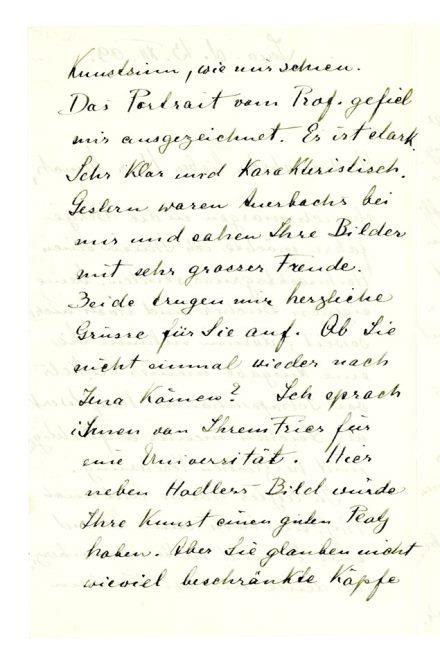 Kunstsinn, wie mir schien.
Das Portrait vom Prof. gefiel
mir ausgezeichnet. Es ist stark.
Sehr Klar und Karakteristisch.
Gestern waren Auerbachs bei
mir und sahen Ihre Bilder
mit sehr grosser Freude.
Beide trugen mir herzliche
Grüsse für Sie auf. Ob Sie
nicht einmal wieder nach
Jena kämen? Ich sprach
ihnen von Ihrem Fries für
eine Universität. Hier
neben Hodlers Bild würde
Ihre Kunst einen guten Platz
haben. Aber Sie glauben nicht
wieviel beschränkte Köpfe